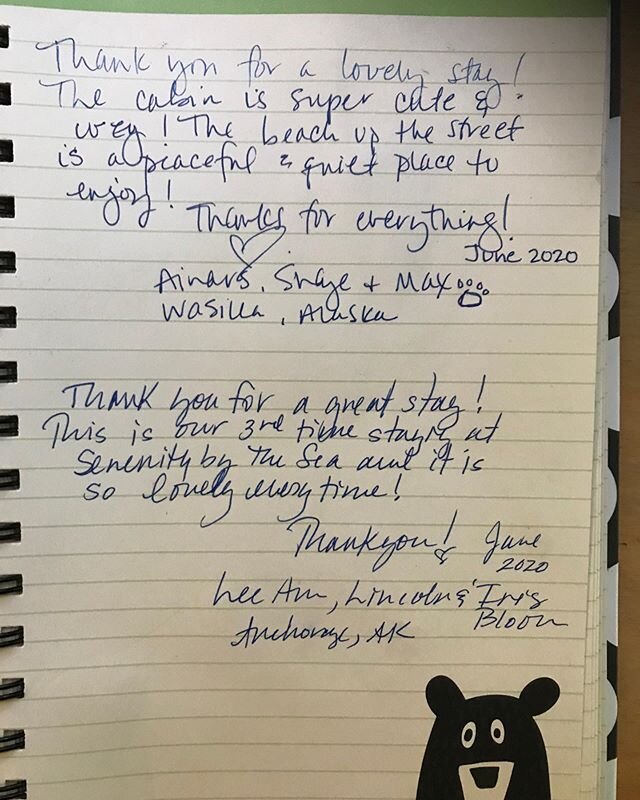 Thank you for a lovely stay!
The cabin is super cute &
cozy! The beach up the street
is a peaceful & quiet place to
enjoy!
Thanks for everything!
June 2020
Ainars, Shaye + Max
Wasilla, Alaska
Thank you for a great stay!
This is our 3rd time staying at
Serenity by the Sea and it is
so lovely every time!
Thank you!
June
2020
Lee Ann, Lincoln & Iris
Bloom
Anchorage, AK